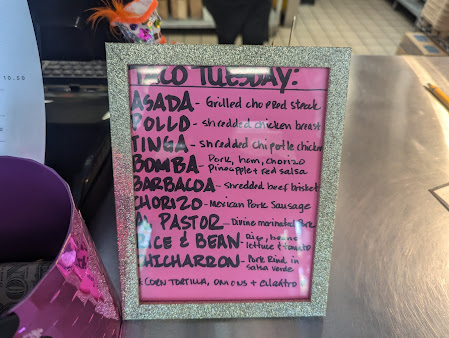 TACO TUESDAY:
ASADA - Grilled chopped steak
POLLO - shredded chicken breast
TINGA - shredded chipotle chicken
BOMBA - Pork, ham, chorizo
pineapple + red salsa
BARBACOA - shredded beef brisket
CHORIZO - Mexican Pork Sausage
AL PASTOR - Divine marinated Pork
RICE & BEAN - Rice, beans
lettuce + tomato
CHICHARRON - Pork Rind in
salsa verde
CORN TORTILLA, ONIONS + CILANTRO
10.50